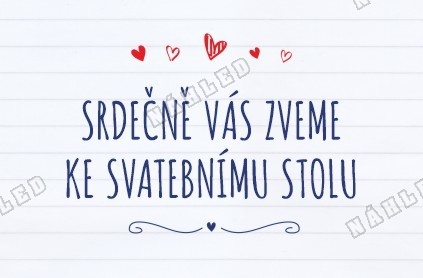 NÁHLED
SRDEČNĚ VÁS ZVEME
KE SVATEBNÍMU STOLU
NÁHLED
NÁHLED
NÁHLED